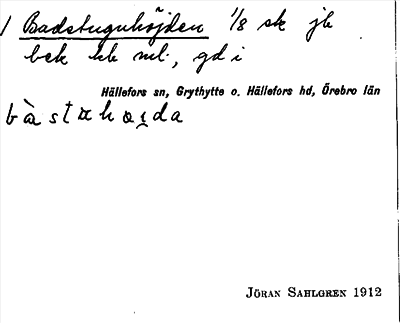 1 Badstuguhöjden 1/8 sk jb
bek hk ml., gd i
Hällefors sn, Grythytte o. Hällefors hd, Örebro län
JÖRAN SAHLGREN 1912